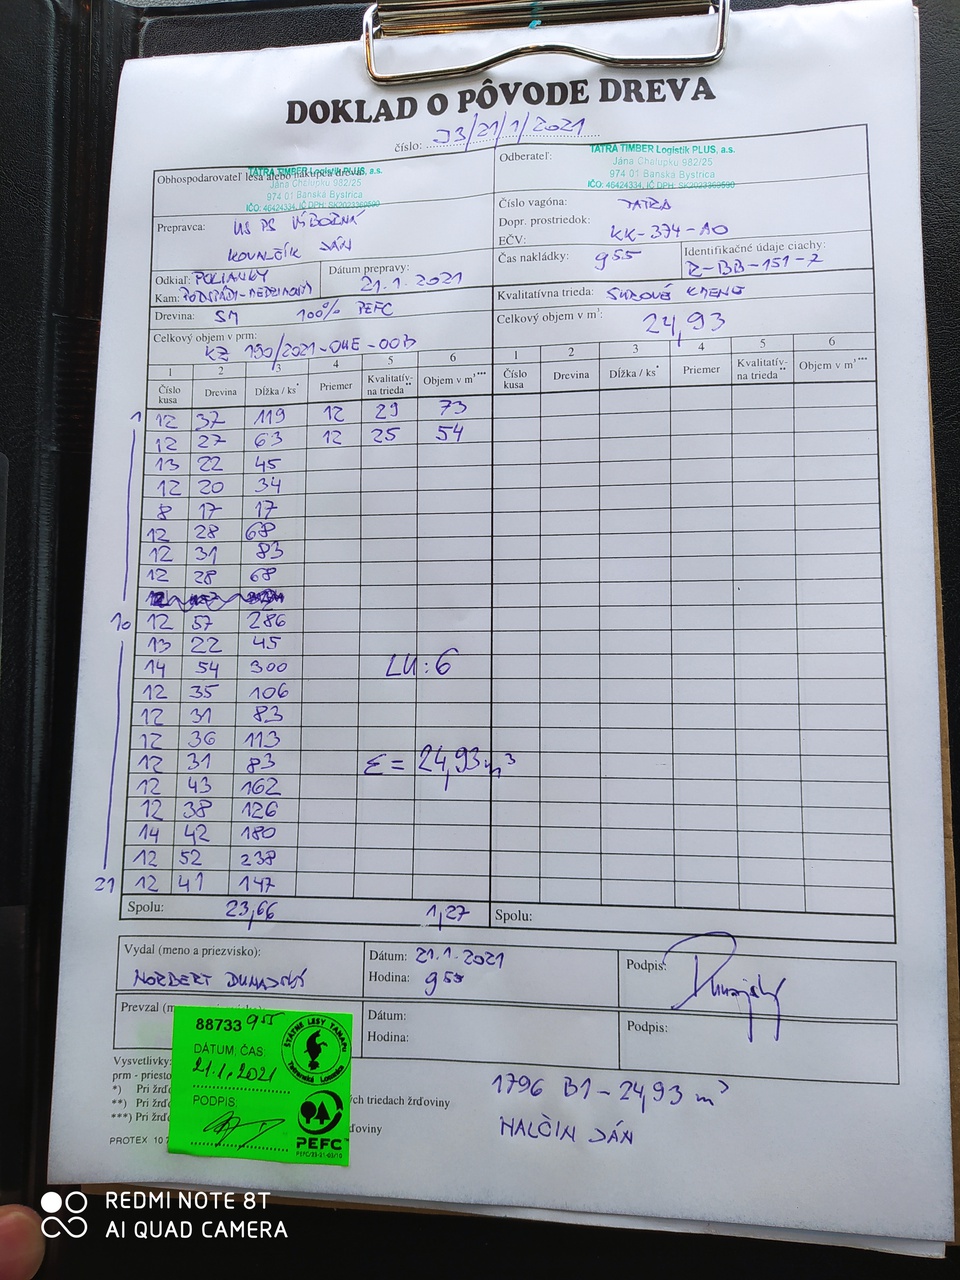 DOKLAD O PÔVODE DREVA
číslo: J3/21/1/2021
Obhospodarovateľ lesa alebo nákupca dreva:
TATRA TIMBER Logistik PLUS, a.s.
Jána Chalupku 982/25
974 01 Banská Bystrica
IČO: 46424334, IČ DPH: SK2023369590
Odberateľ:
TATRA TIMBER Logistik PLUS, a.s.
Jána Chalupku 982/25
974 01 Banská Bystrica
IČO: 46424334, IČ DPH: SK2023369590
Prepravca: US PS VÝBORNÁ
KOVALČÍK JÁN
Číslo vagóna: TATRA
Dopr. prostriedok:
EČV: KK-374-AO
Odkiaľ: POLIANKY
Kam:
Dátum prepravy: 21.1.2021
Čas nakládky: 9 55
Identifikačné údaje ciachy:
Z-BB-151-7
Drevina: SM 100% PEFC
Kvalitatívna trieda: SUROVÉ KMENE
Celkový objem v prm:
KZ 190/2021-OHE-OOB
Celkový objem v m³: 24,93
1 2 3 4 5 6 1 2 3 4 5 6
Číslo kusa Drevina Dĺžka / ks* Priemer Kvalitatívna trieda** Objem v m³*** Číslo kusa Drevina Dĺžka / ks* Priemer Kvalitatívna trieda** Objem v m³***
1 12 37 119 12 29 73
12 27 63 12 25 54
13 22 45
12 20 34
8 17 17
12 28 68
12 31 83
12 28 68
10 12 57 286
13 22 45
14 54 300 LU: 6
12 35 106
12 31 83
12 36 113
12 31 83 Σ = 24,93 m³
12 43 162
12 38 126
14 42 180
12 52 238
21 12 41 147
Spolu: 23,66 1,27 Spolu:
Vydal (meno a priezvisko):
NORBERT DUNAJSKÝ
Dátum: 21.1.2021
Hodina: 9 55
Podpis:
Prevzal
Dátum:
Hodina:
Podpis:
88733 9 55
DÁTUM, ČAS:
21.1.2021
PODPIS:
ŠTÁTNE LESY TANAPU
Tatranská Lomnica
PEFC™
Vysvetlivky:
prm - priesto
*) Pri žrď
**) Pri žrď ých triedach žrďoviny
***) Pri žrď ďoviny
PROTEX 10
1796 B1 - 24,93 m³
HALČIN JÁN
REDMI NOTE 8T
AI QUAD CAMERA